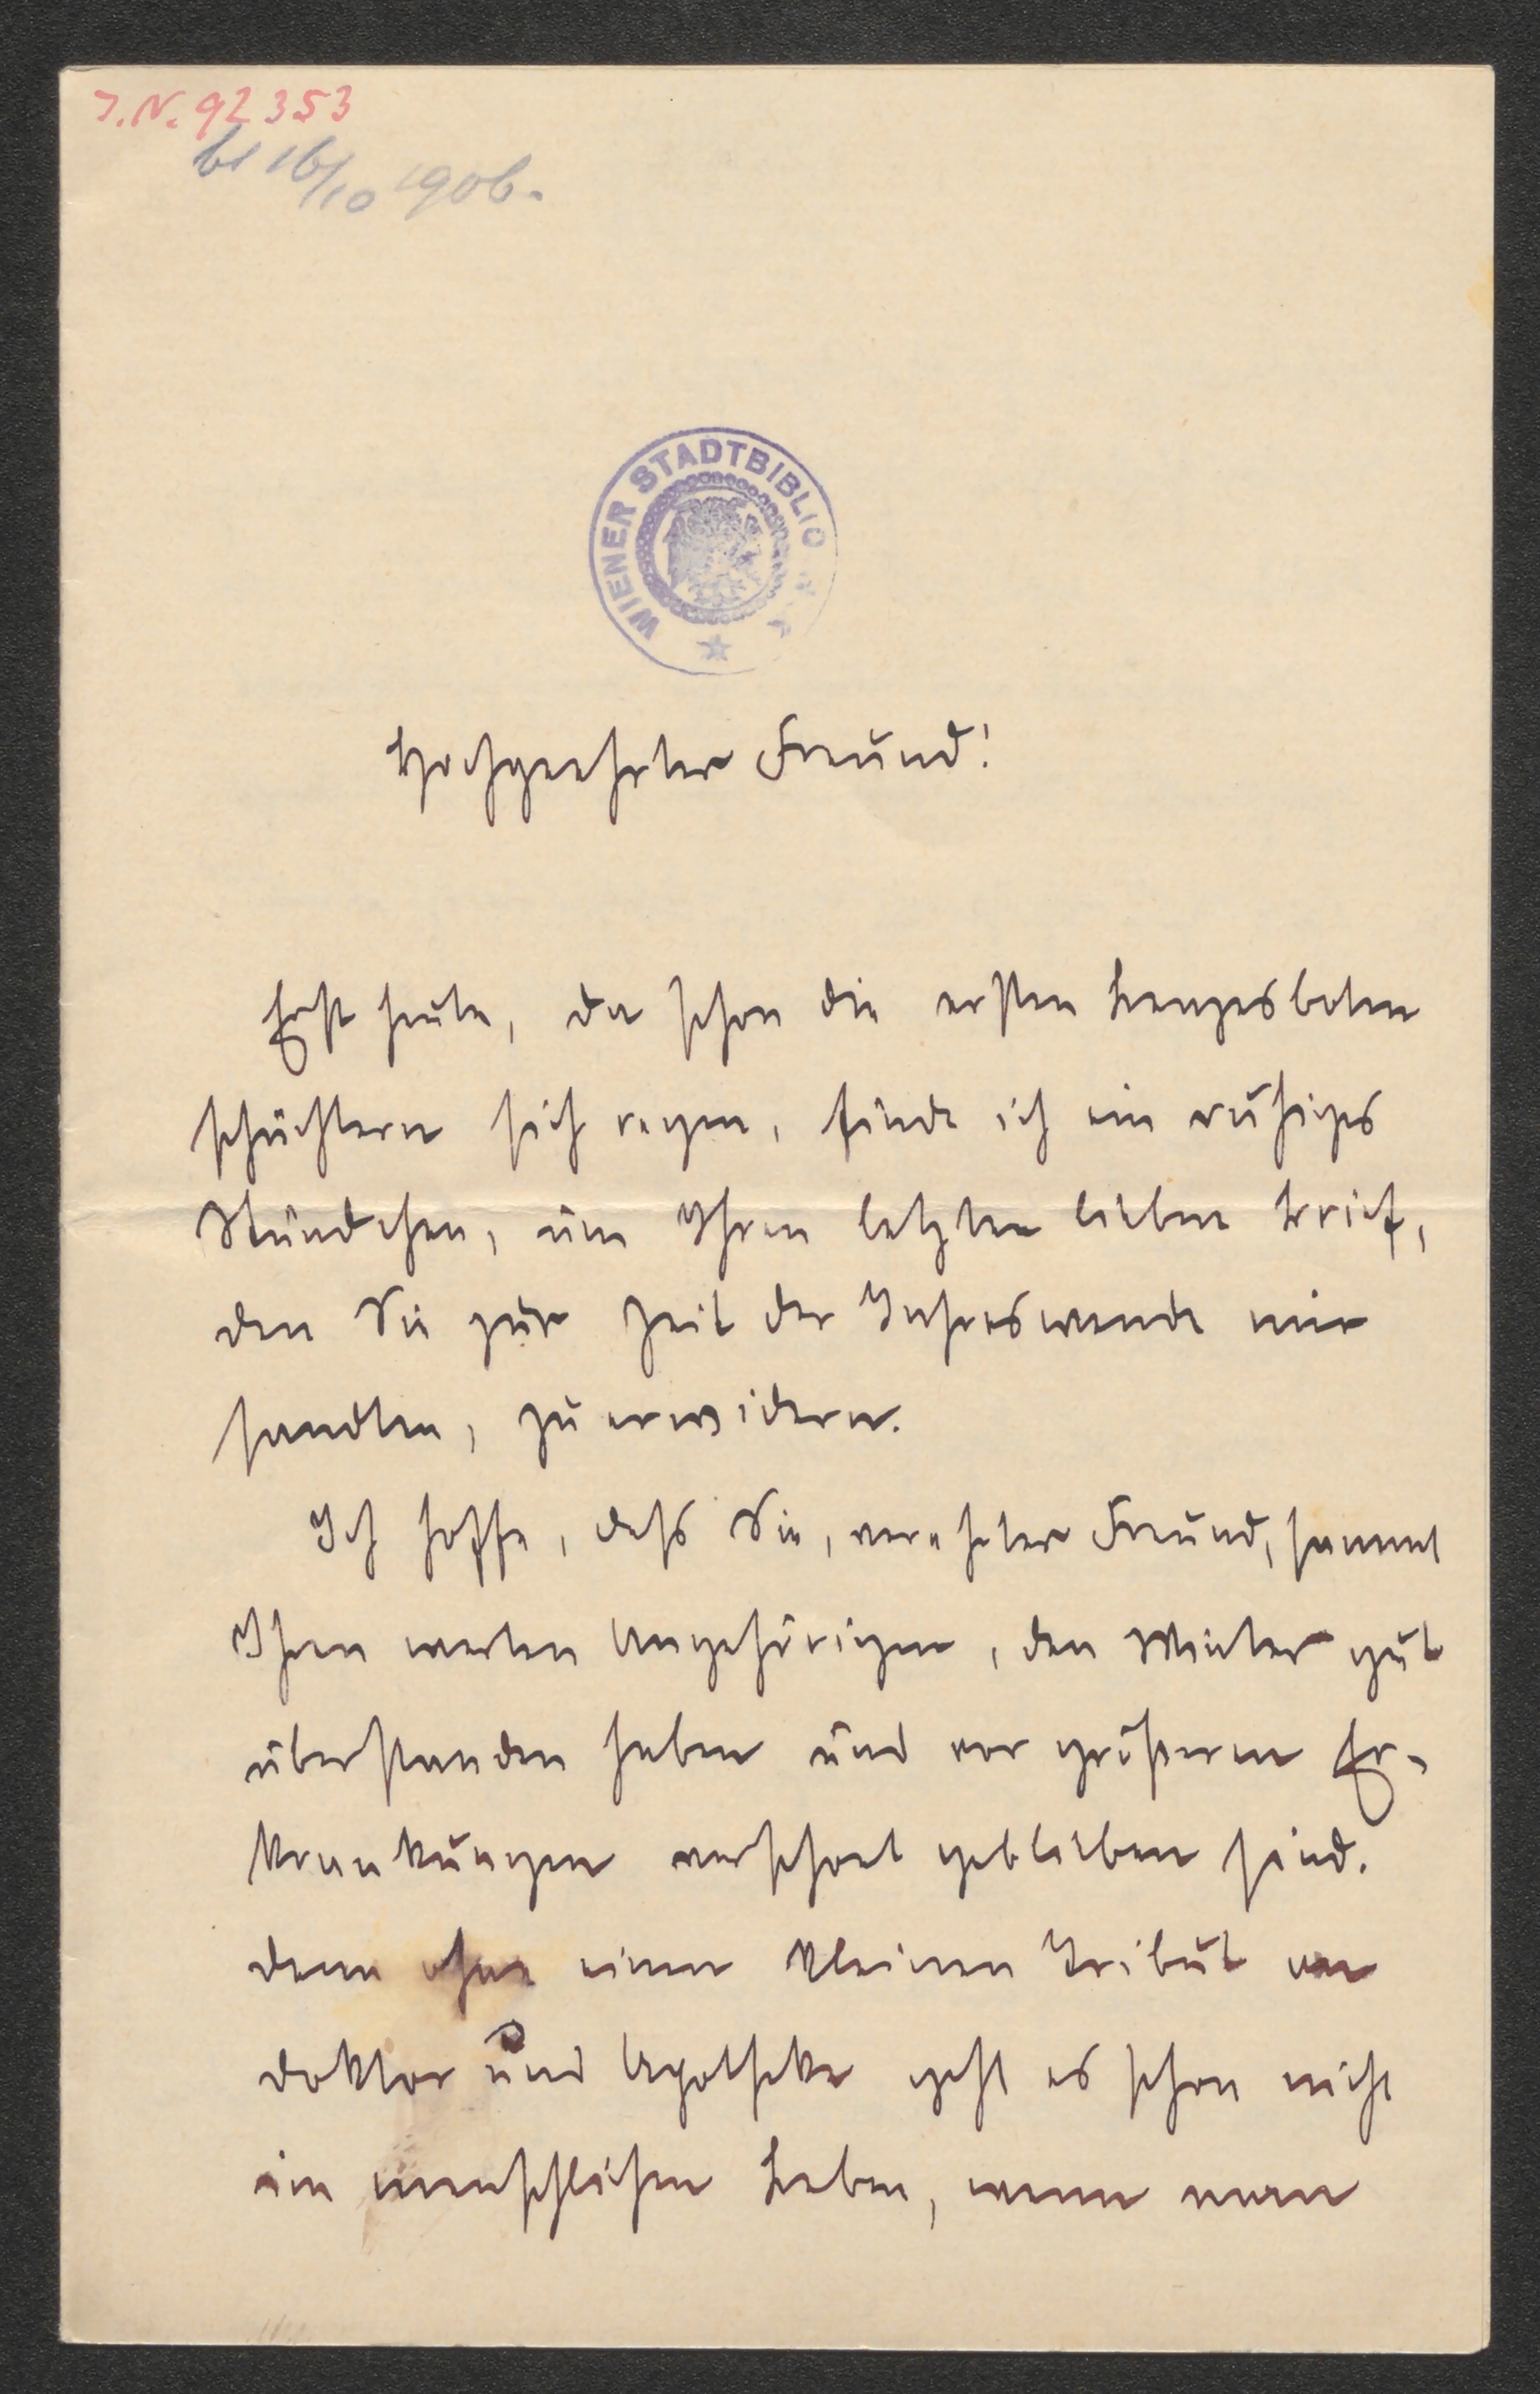 I.N. 92353
bt 16/10 1906.
WIENER STADTBIBLIO
Hochgeehrter Freund!
Erst heute, da schon die ersten Lenzesboten
schüchtern sich regen, finde ich ein ruhiges
Stündchen, um Ihren letzten lieben Brief,
den Sie zur Zeit der Jahreswende mir
sandten, zu erwidern.
Ich hoffe, dass Sie, verehrter Freund, sammt
Ihren werten Angehörigen, den Winter gut
überstanden haben und vor größeren Er-
krankungen verschont geblieben sind.
denn ohne einen kleinen Tribut an
doktor und Apotheke geht es schon nicht
im menschlichen Leben, wenn man